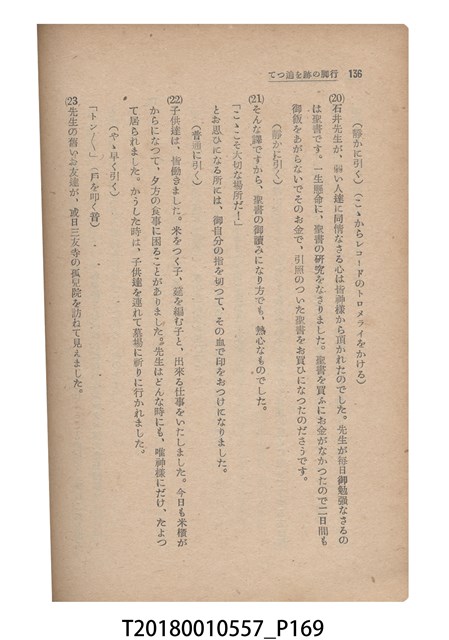 136　行脚の跡を追つて
（靜かに引く）（こゝからレコードのトロメライをかける）
(20)　石井先生が、弱い人達に同情なさる心は皆神樣から頂かれたのでした。先生が毎日御勉強なさるの
は聖書です。一生懸命に、聖書の研究をなさりました。聖書を買ふにお金がなかつたので二日間も
御飯をあがらないでそのお金で、引照のついた聖書をお買ひになつたのださうです。
（靜かに引く）
(21)　そんな譯ですから、聖書の御讀みになり方でも、熱心なものでした。
「こゝこそ大切な場所だ！」
とお思ひになる所には、御自分の指を切つて、その血で印をおつけになりました。
（普通に引く）
(22)　子供達は、皆働きました。米をつく子、莚を編む子と、出來る仕事をいたしました。今日も米櫃が
からになつて、夕方の食事に困ることがありました。先生はどんな時にも、唯神樣にだけ、たよつ
て居られました。かうした時は、子供達を連れて墓場に祈りに行かれました。
（やゝ早く引く）
「トン／＼」（戸を叩く音）
(23)　先生の舊いお友達が、或日三友寺の孤兒院を訪ねて見えました。
T20180010557_P169